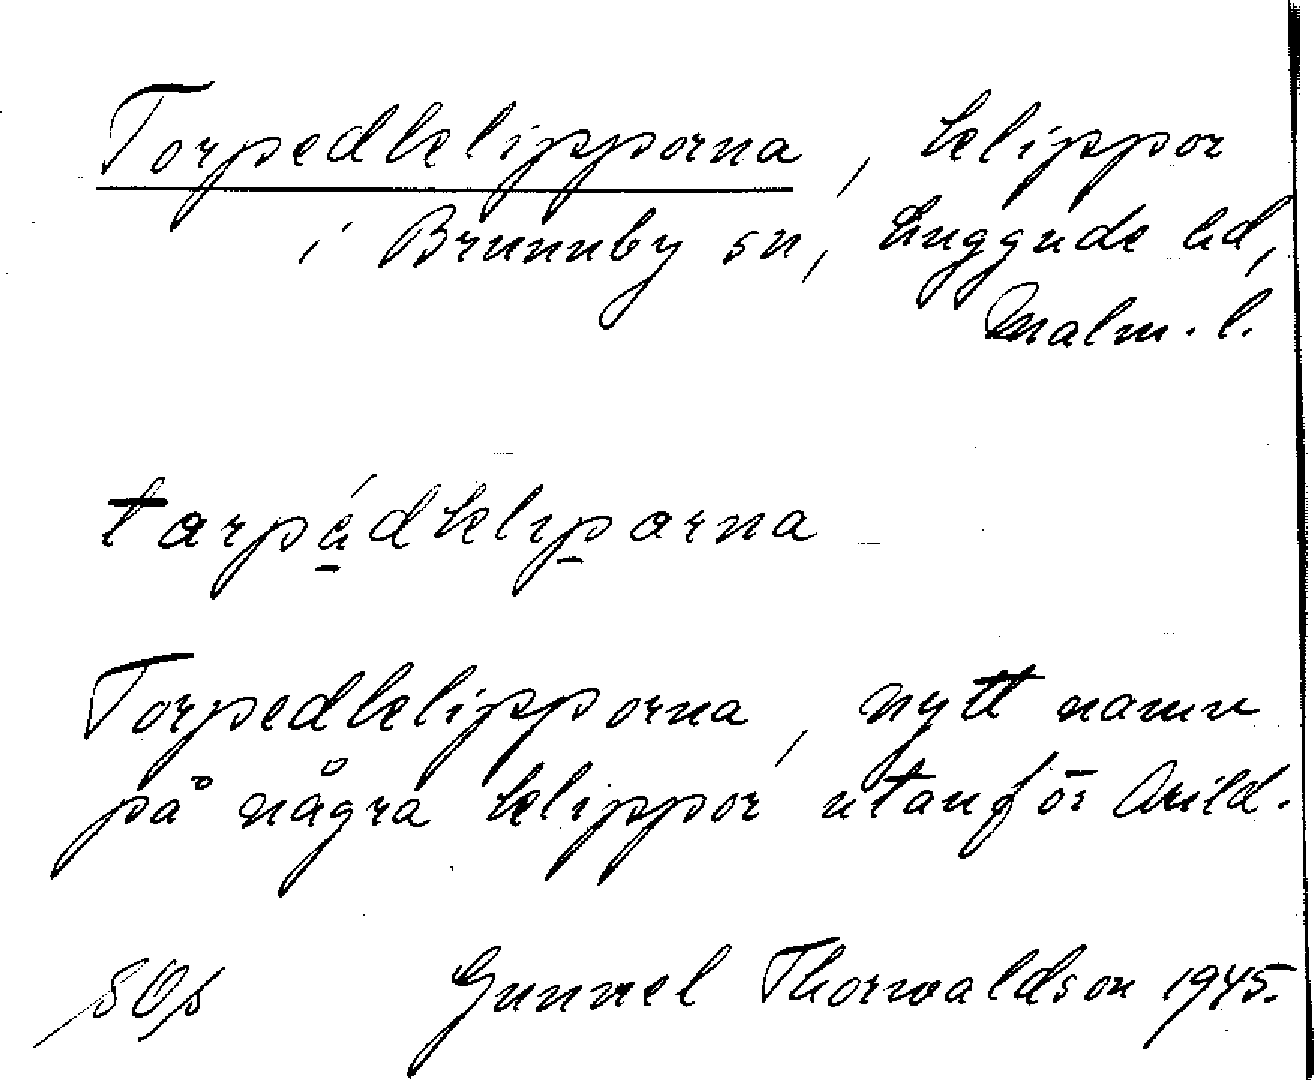 Torpedklipporna, klippor
i Brunnby sn, Luggude hd,
Malm. l.
tarpädkliparna
Torpedklipporna, nytt namn
på några klippor utanför Arild.
Gunnel Thorwaldson 1945.